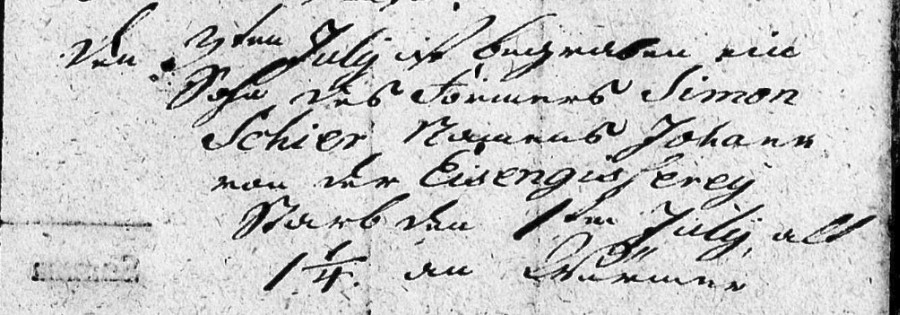 Den 2ten July ist begraben ein
Sohn des Förmers Simon
Schier Namens Johann
von der Eisengisserey
Starb den 1ten July, alt
1 1/4 an Würmer